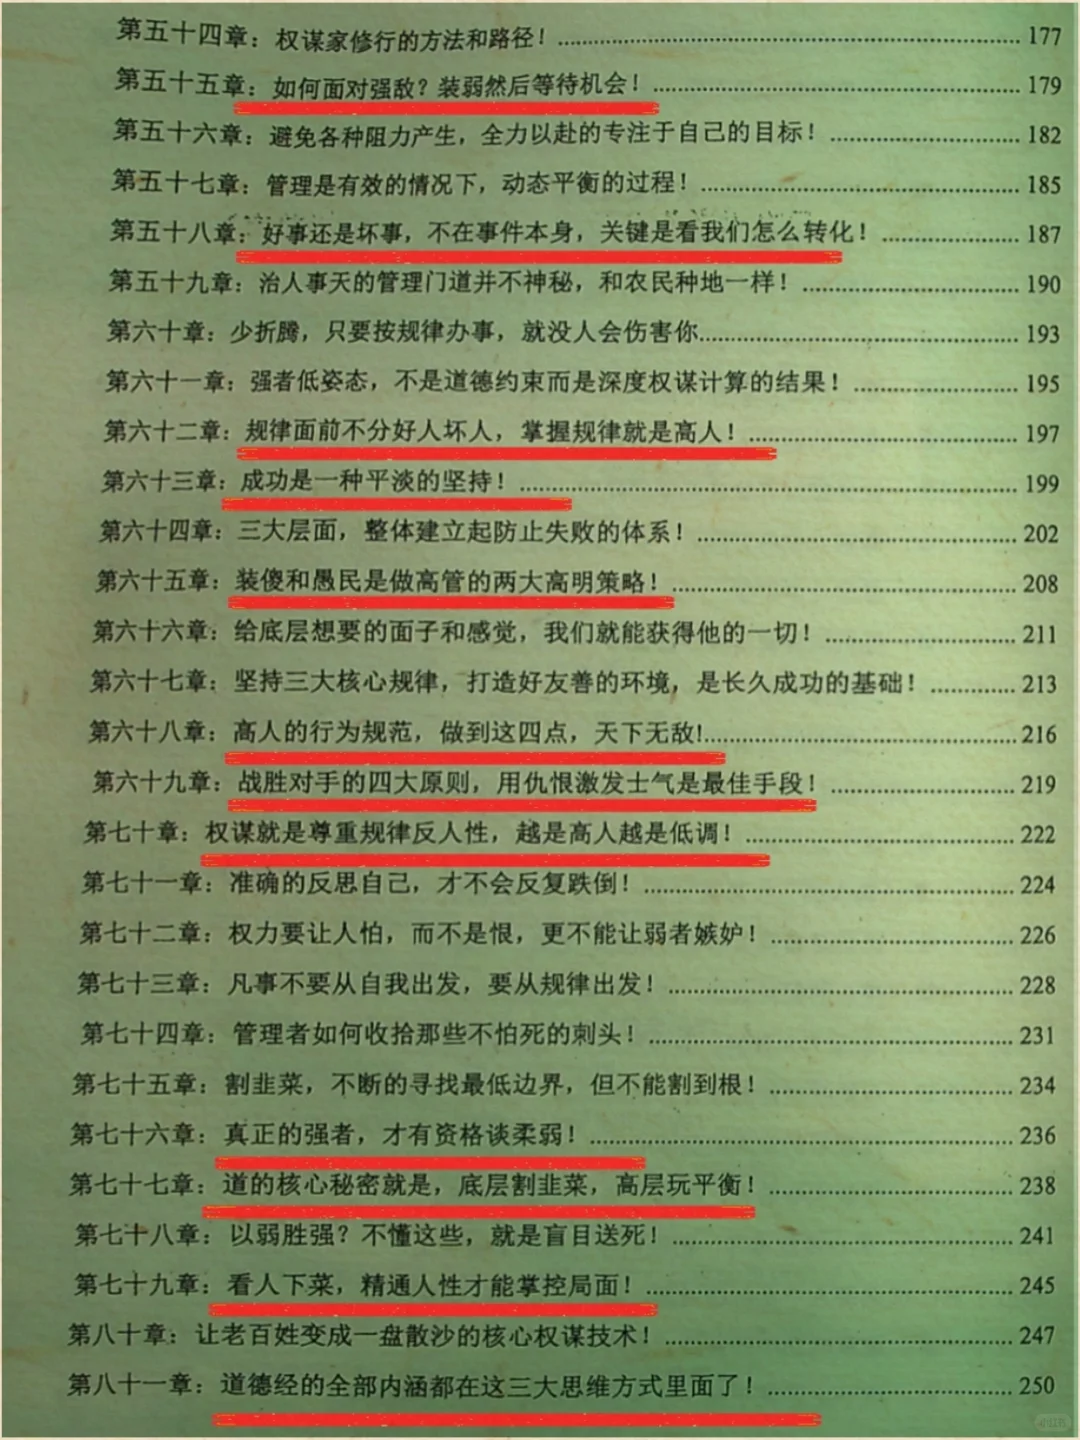 第五十四章：权谋家修行的方法和路径！ 177
第五十五章：如何面对强敌？装弱然后等待机会！ 179
第五十六章：避免各种阻力产生，全力以赴的专注于自己的目标！ 182
第五十七章：管理是有效的情况下，动态平衡的过程！ 185
第五十八章：好事还是坏事，不在事件本身，关键是看我们怎么转化！ 187
第五十九章：治人事天的管理门道并不神秘，和农民种地一样！ 190
第六十章：少折腾，只要按规律办事，就没人会伤害你 193
第六十一章：强者低姿态，不是道德约束而是深度权谋计算的结果！ 195
第六十二章：规律面前不分好人坏人，掌握规律就是高人！ 197
第六十三章：成功是一种平淡的坚持！ 199
第六十四章：三大层面，整体建立起防止失败的体系！ 202
第六十五章：装傻和愚民是做高管的两大高明策略！ 208
第六十六章：给底层想要的面子和感觉，我们就能获得他的一切！ 211
第六十七章：坚持三大核心规律，打造好友善的环境，是长久成功的基础！ 213
第六十八章：高人的行为规范，做到这四点，天下无敌! 216
第六十九章：战胜对手的四大原则，用仇恨激发士气是最佳手段！ 219
第七十章：权谋就是尊重规律反人性，越是高人越是低调！ 222
第七十一章：准确的反思自己，才不会反复跌倒！ 224
第七十二章：权力要让人怕，而不是恨，更不能让弱者嫉妒！ 226
第七十三章：凡事不要从自我出发，要从规律出发！ 228
第七十四章：管理者如何收拾那些不怕死的刺头！ 231
第七十五章：割韭菜，不断的寻找最低边界，但不能割到根！ 234
第七十六章：真正的强者，才有资格谈柔弱！ 236
第七十七章：道的核心秘密就是，底层割韭菜，高层玩平衡！ 238
第七十八章：以弱胜强？不懂这些，就是盲目送死！ 241
第七十九章：看人下菜，精通人性才能掌控局面！ 245
第八十章：让老百姓变成一盘散沙的核心权谋技术！ 247
第八十一章：道德经的全部内涵都在这三大思维方式里面了！ 250